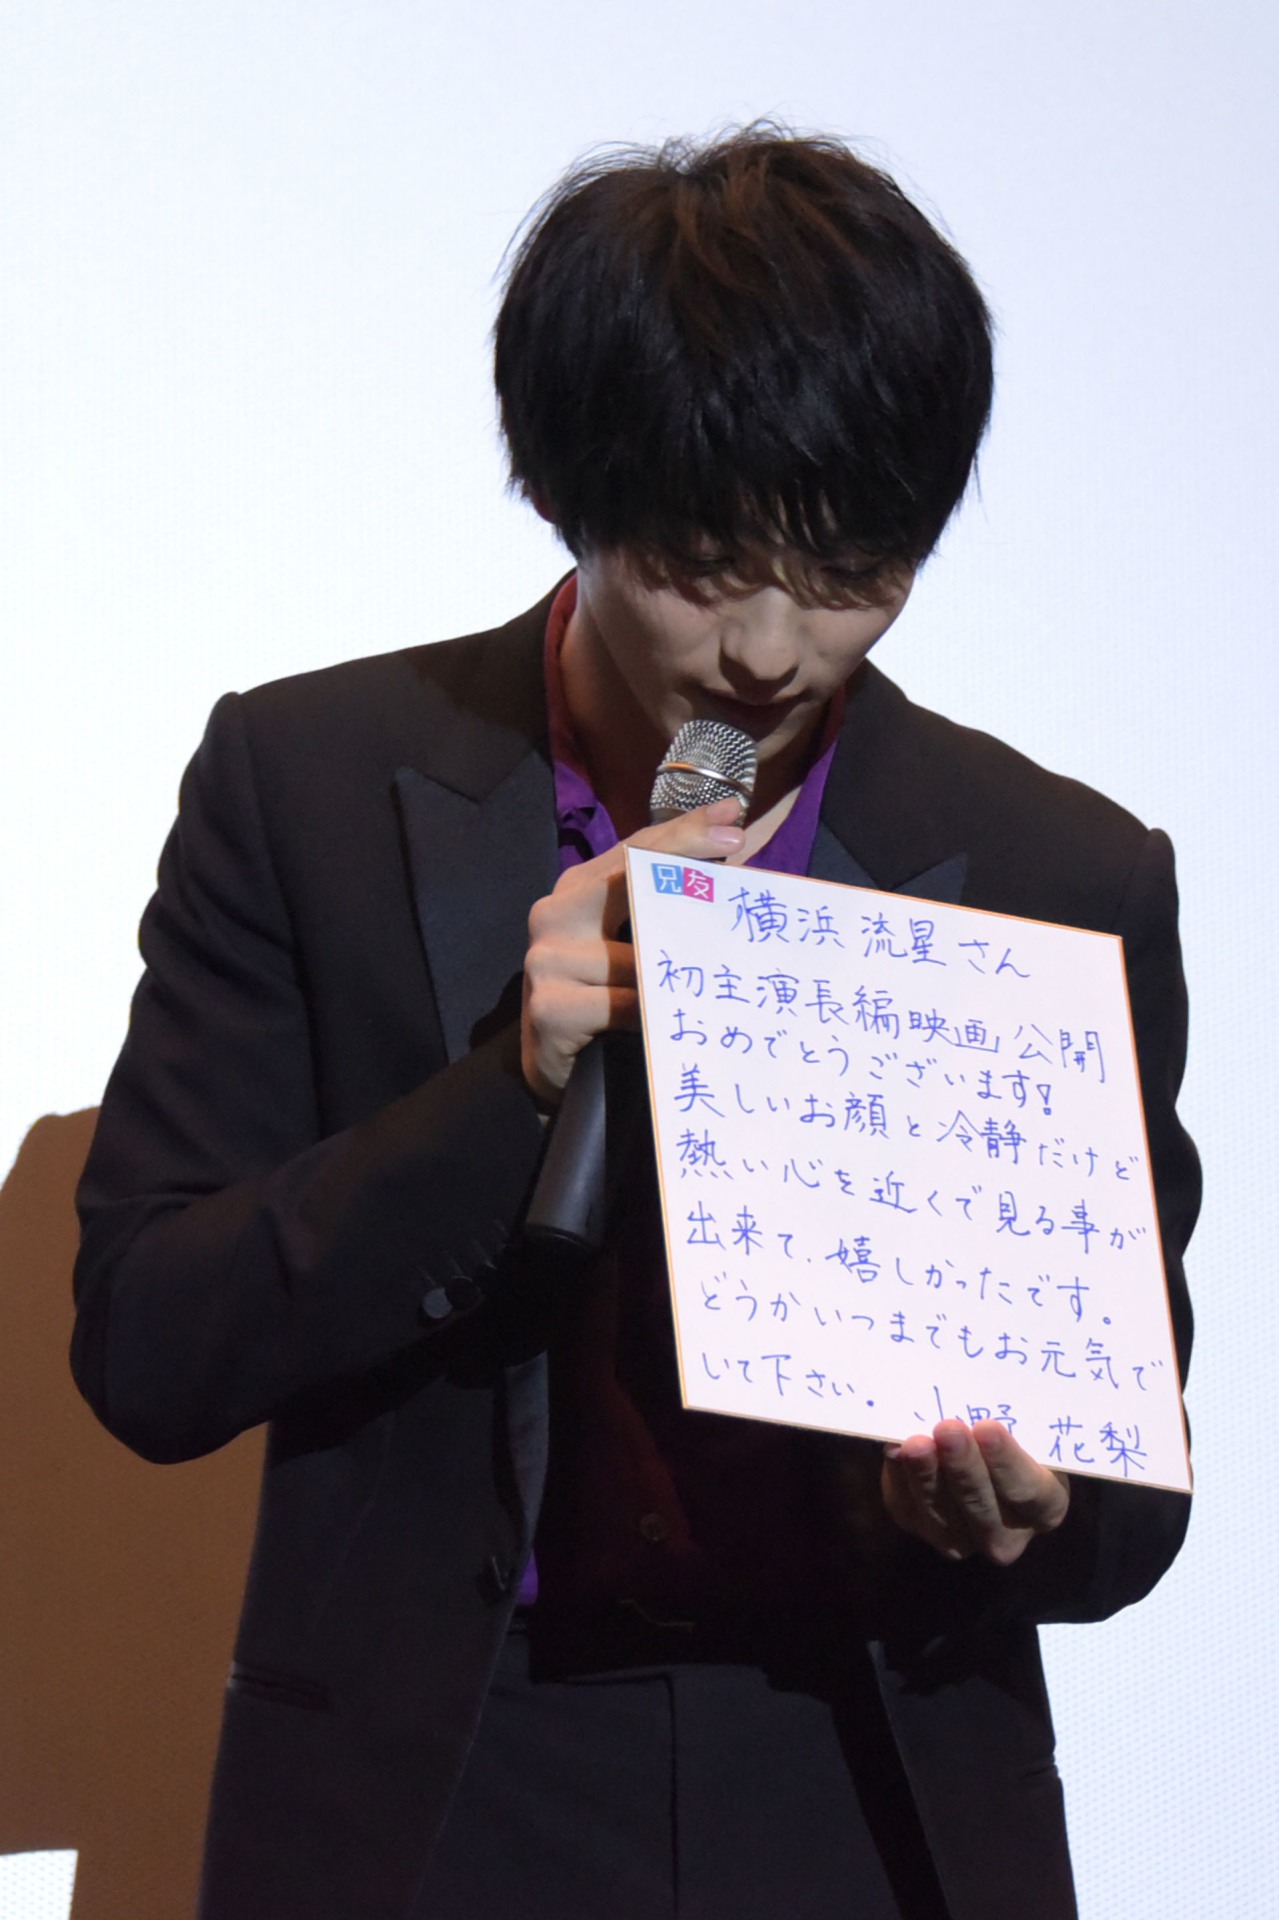 兄友
横浜流星さん
初主演長編映画公開
おめでとうございます!
美しいお顔と冷静だけど
熱い心を近くで見る事が
出来て、嬉しかったです。
どうかいつまでもお元気で
いて下さい。
小野 花梨